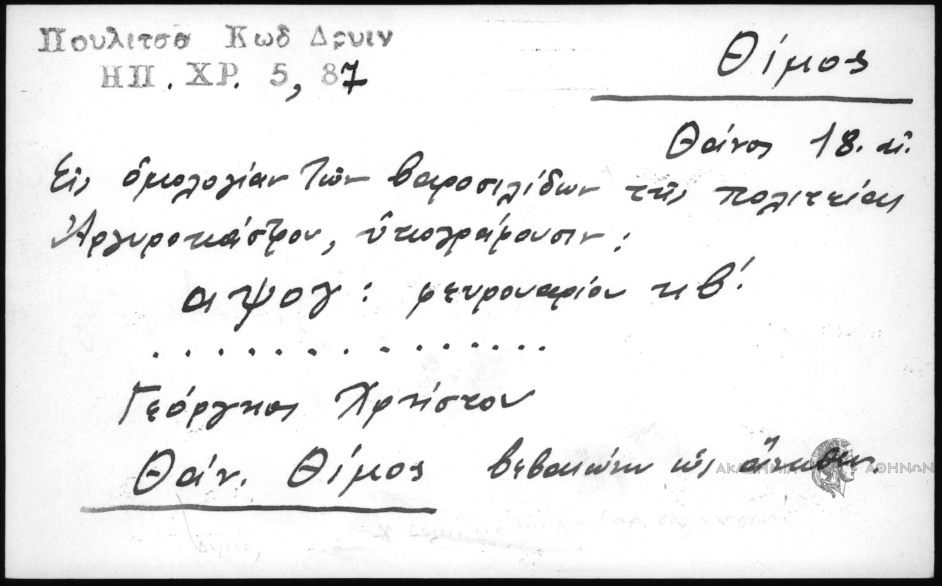 Πουλιτσα Κωδ Δρυιν
ΗΠ. ΧΡ. 5, 87
Θίμος
Θάνος 18. αἰ.
Εἰς ὁμολογίαν τῶν βαροσιλίδων τῆς πολιτείας
Ἀργυροκάστρου, ὑπογράφουσιν:
αψογ: φευρουαρίου κβ΄.
. . . . . . . . . . . . . . .
Γεόργηος Χρήστου
Θάν. Θίμος βεβαιώνω ὡς ἄνωθεν.
ΑΚΑΔΗΜΙΑ ΑΘΗΝΩΝ